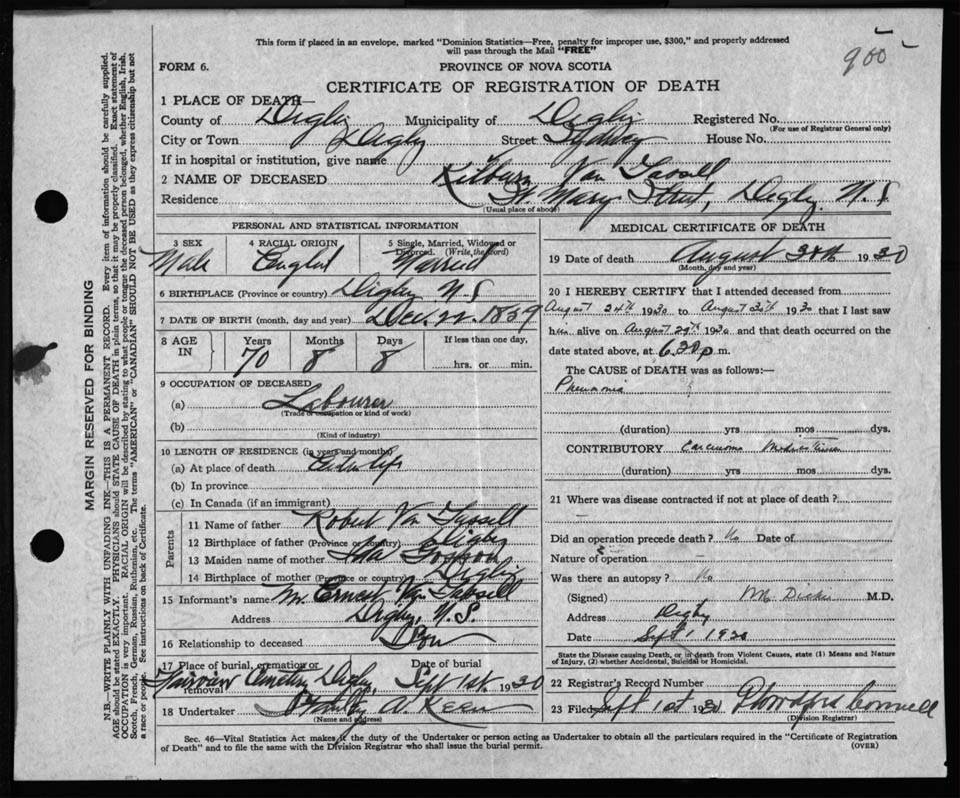 900
This form if placed in an envelope, marked "Dominion Statistics—Free, penalty for improper use, $300," and properly addressed
will pass through the Mail "FREE"
FORM 6.
PROVINCE OF NOVA SCOTIA
CERTIFICATE OF REGISTRATION OF DEATH
1 PLACE OF DEATH—
County of Digby Municipality of Digby Registered No.
(For use of Registrar General only)
City or Town Digby Street Sydney House No.
If in hospital or institution, give name
2 NAME OF DECEASED Kilburn Van Tassell
Residence St. Mary Street, Digby N.S
(Usual place of abode)
PERSONAL AND STATISTICAL INFORMATION
3 SEX 4 RACIAL ORIGIN 5 Single, Married, Widowed or Divorced. (Write the word)
Male English Married
6 BIRTHPLACE (Province or country) Digby N.S
7 DATE OF BIRTH (month, day and year) Dec. 22 1859
8 AGE IN Years Months Days If less than one day,
70 8 8 hrs. or min.
9 OCCUPATION OF DECEASED
(a) Labourer
(Trade or occupation or kind of work)
(b)
(Kind of industry)
10 LENGTH OF RESIDENCE (in years and months)
(a) At place of death
(b) In province
(c) In Canada (if an immigrant)
Parents
11 Name of father Robert Van Tassell
12 Birthplace of father (Province or country) Digby
13 Maiden name of mother Ida
14 Birthplace of mother (Province or country) Digby
15 Informant's name Mr. Ernest Van Tassell
Address Digby, N.S.
16 Relationship to deceased Son
17 Place of burial, cremation or removal Date of burial
Digby, Sept 1st. 1930
18 Undertaker A. Keen
(Name and address)
MEDICAL CERTIFICATE OF DEATH
19 Date of death August 30th 1930
(Month, day and year)
20 I HEREBY CERTIFY that I attended deceased from
August 24th 1930 to August 30th 1930 that I last saw
him alive on August 29th 1930 and that death occurred on the
date stated above, at 6.30 p.m.
The CAUSE of DEATH was as follows:—
Pneumonia
(duration) yrs mos dys.
CONTRIBUTORY Carcinoma
(duration) yrs mos dys.
21 Where was disease contracted if not at place of death?
Did an operation precede death? No Date of
Nature of operation —
Was there an autopsy? No
(Signed) M.D.
Address Digby
Date Sept 1 1930
State the Disease causing Death, or in death from Violent Causes, state (1) Means and Nature
of Injury, (2) whether Accidental, Suicidal or Homicidal.
22 Registrar's Record Number
23 Filed Sept 1st 1930
(Division Registrar)
Sec. 46—Vital Statistics Act makes it the duty of the Undertaker or person acting as Undertaker to obtain all the particulars required in the "Certificate of Registration
of Death" and to file the same with the Division Registrar who shall issue the burial permit.
(OVER)
MARGIN RESERVED FOR BINDING
N.B.—WRITE PLAINLY WITH UNFADING INK—THIS IS A PERMANENT RECORD. Every item of information should be carefully supplied.
AGE should be stated EXACTLY. PHYSICIANS should STATE CAUSE OF DEATH in plain terms, so that it may be properly classified. Exact statement of
OCCUPATION is very important. RACIAL ORIGIN will be described by stating to what people or tongue the deceased person belonged, whether English, Irish,
Scotch, French, German, Russian, Ruthenian, etc. The terms "AMERICAN" or "CANADIAN" SHOULD NOT BE USED as they express citizenship but not
a race or people. See instructions on back of Certificate.